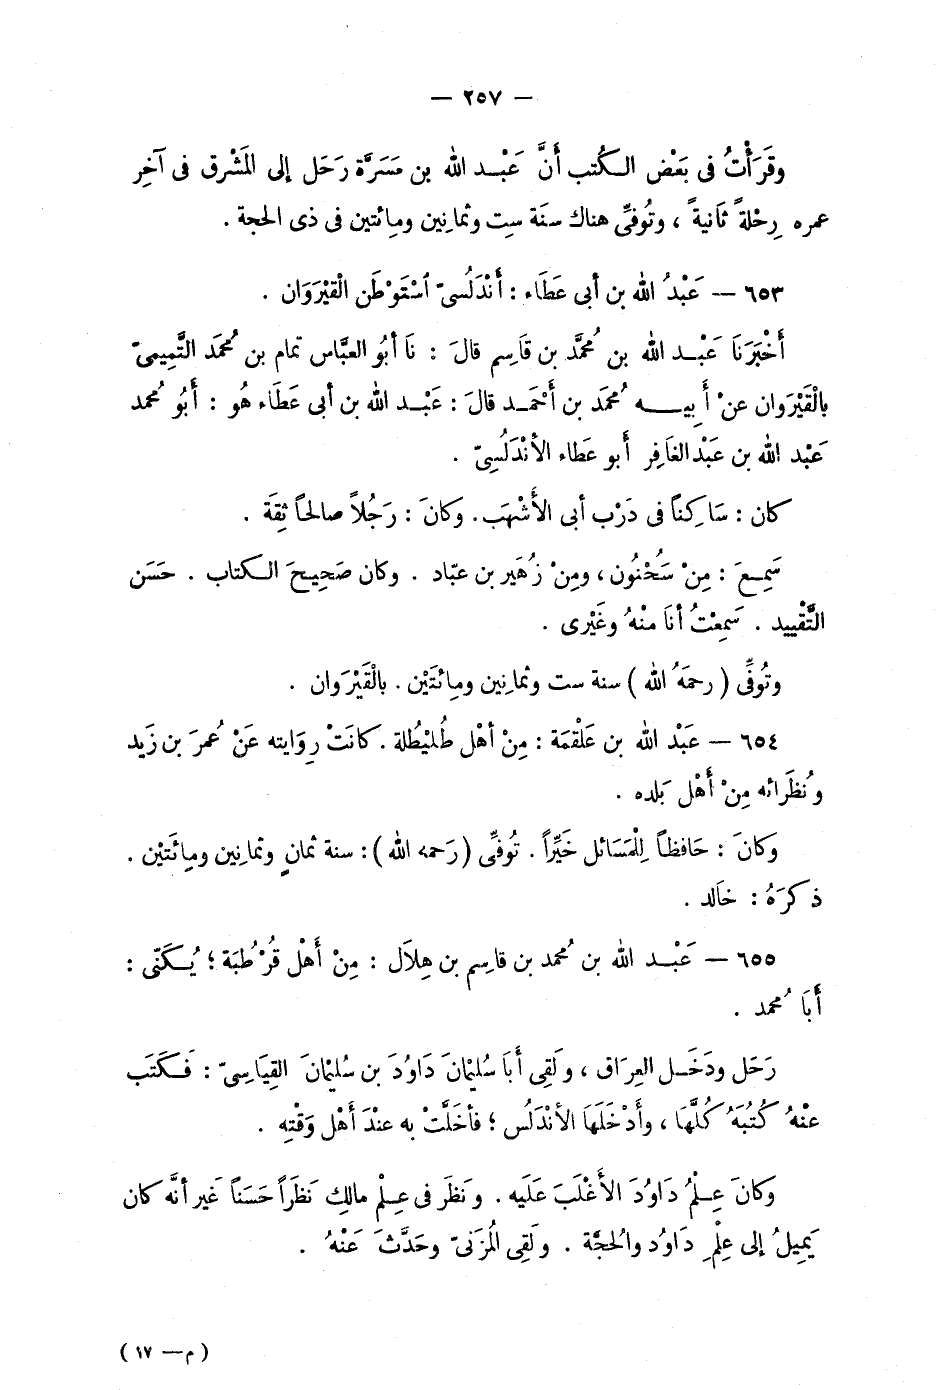 — ٢٥٧ —
وقَرَأْتُ فى بَعْض الكُتب أَنَّ عَبْد الله بن مَسَرَّة رَحَل إلى المَشْرق فى آخِر
عمره رِحْلةً ثَانيةً ، وتُوفِّى هناك سنَة سِت وثمانِين ومِائتين فى ذى الحجة .
٦٥٣ — عَبْدُ الله بن أبى عَطَاء : أَنْدَلُسىّ ٱسْتَوْطَن الْقَيْرَوَان .
أَخْبَرَنَا عَبْد الله بن مُحمَّد بن قَاسِم قالَ : نَا أَبُو العبَّاس تمام بن مُحمَد التَّمِيمىّ
بالْقَيْرَوان عنْ أَبِيه مُحمَد بن أَحْمَد قالَ : عَبْد الله بن أبى عَطَاء هُو : أَبُو مُحمد
عَبْد الله بن عَبْد الغَافِر أَبو عطاء الأنْدَلُسِىّ .
كان : سَاكِنًا فى دَرْب أبى الأَشْهَب. وكانَ : رَجُلاً صالحًا ثِقَة .
سَمِعَ : مِنْ سَحْنُون ، ومِنْ زُهَير بن عبّاد . وكان صَحِيحَ الكتاب . حَسَن
التَّقْييد . سَمِعْتُ أنَا منْهُ وغَيْرى .
وتُوفِّى ( رحمَهُ الله ) سنة ست وثمانِين ومِائتَيْن . بالْقَيْرَوان .
٦٥٤ — عَبْد الله بن عَلْقمَة : مِنْ أهْل طُليْطُلة . كانَتْ رِوَايته عَنْ عُمرَ بن زَيد
ونُظَرائه مِنْ أَهْل بَلده .
وكانَ : حَافظاً لِلْمَسَائل خَيِّراً . تُوفِّى (رَحمه الله) : سنة ثمانٍ وثمانِين ومِائتَيْن .
ذكرَهُ : خالد .
٦٥٥ — عَبْد الله بن مُحمد بن قاسِم بن هِلاَل : مِنْ أَهْل قُرْطُبَة ؛ يُكَنّى :
أَبَا مُحمد .
رَحَل ودَخَل العِرَاق ، ولَقِى أَبَا سُليْمانَ دَاوُدَ بن سُليْمانَ القِيَاسِىّ : فَكَتَب
عنْهُ كُتُبَهُ كُلَّهَا ، وأَدْخَلَهَا الأنْدَلُس ؛ فأخَلَّتْ به عندَ أَهْل وَقْتِه .
وكانَ عِلْمُ دَاوُدَ الأَغْلَبَ عَلَيه . ونَظَر فى عِلْم مالِك نَظَراً حَسَناً غَير أنَّه كان
يَمِيلُ إلى عِلْمِ دَاوُد والحُجَّة . ولَقِى المُزَنىّ وحَدَّثَ عَنْهُ .
( م — ١٧ )